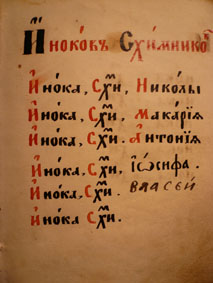 И҆́нокѡвъ Схи́мникѡⷡ҇
И҆́нока, Схиⷨ҇, Николы
И҆́нока, Схиⷨ҇, Мака́рїѧ
И҆́нока, Схиⷨ҇. А҆нто́нїѧ
И҆́нока, Схиⷨ҇. І҆ѡ́сифа.
И҆́нока. Схиⷨ҇. Власей
И҆́нока Схиⷨ҇.